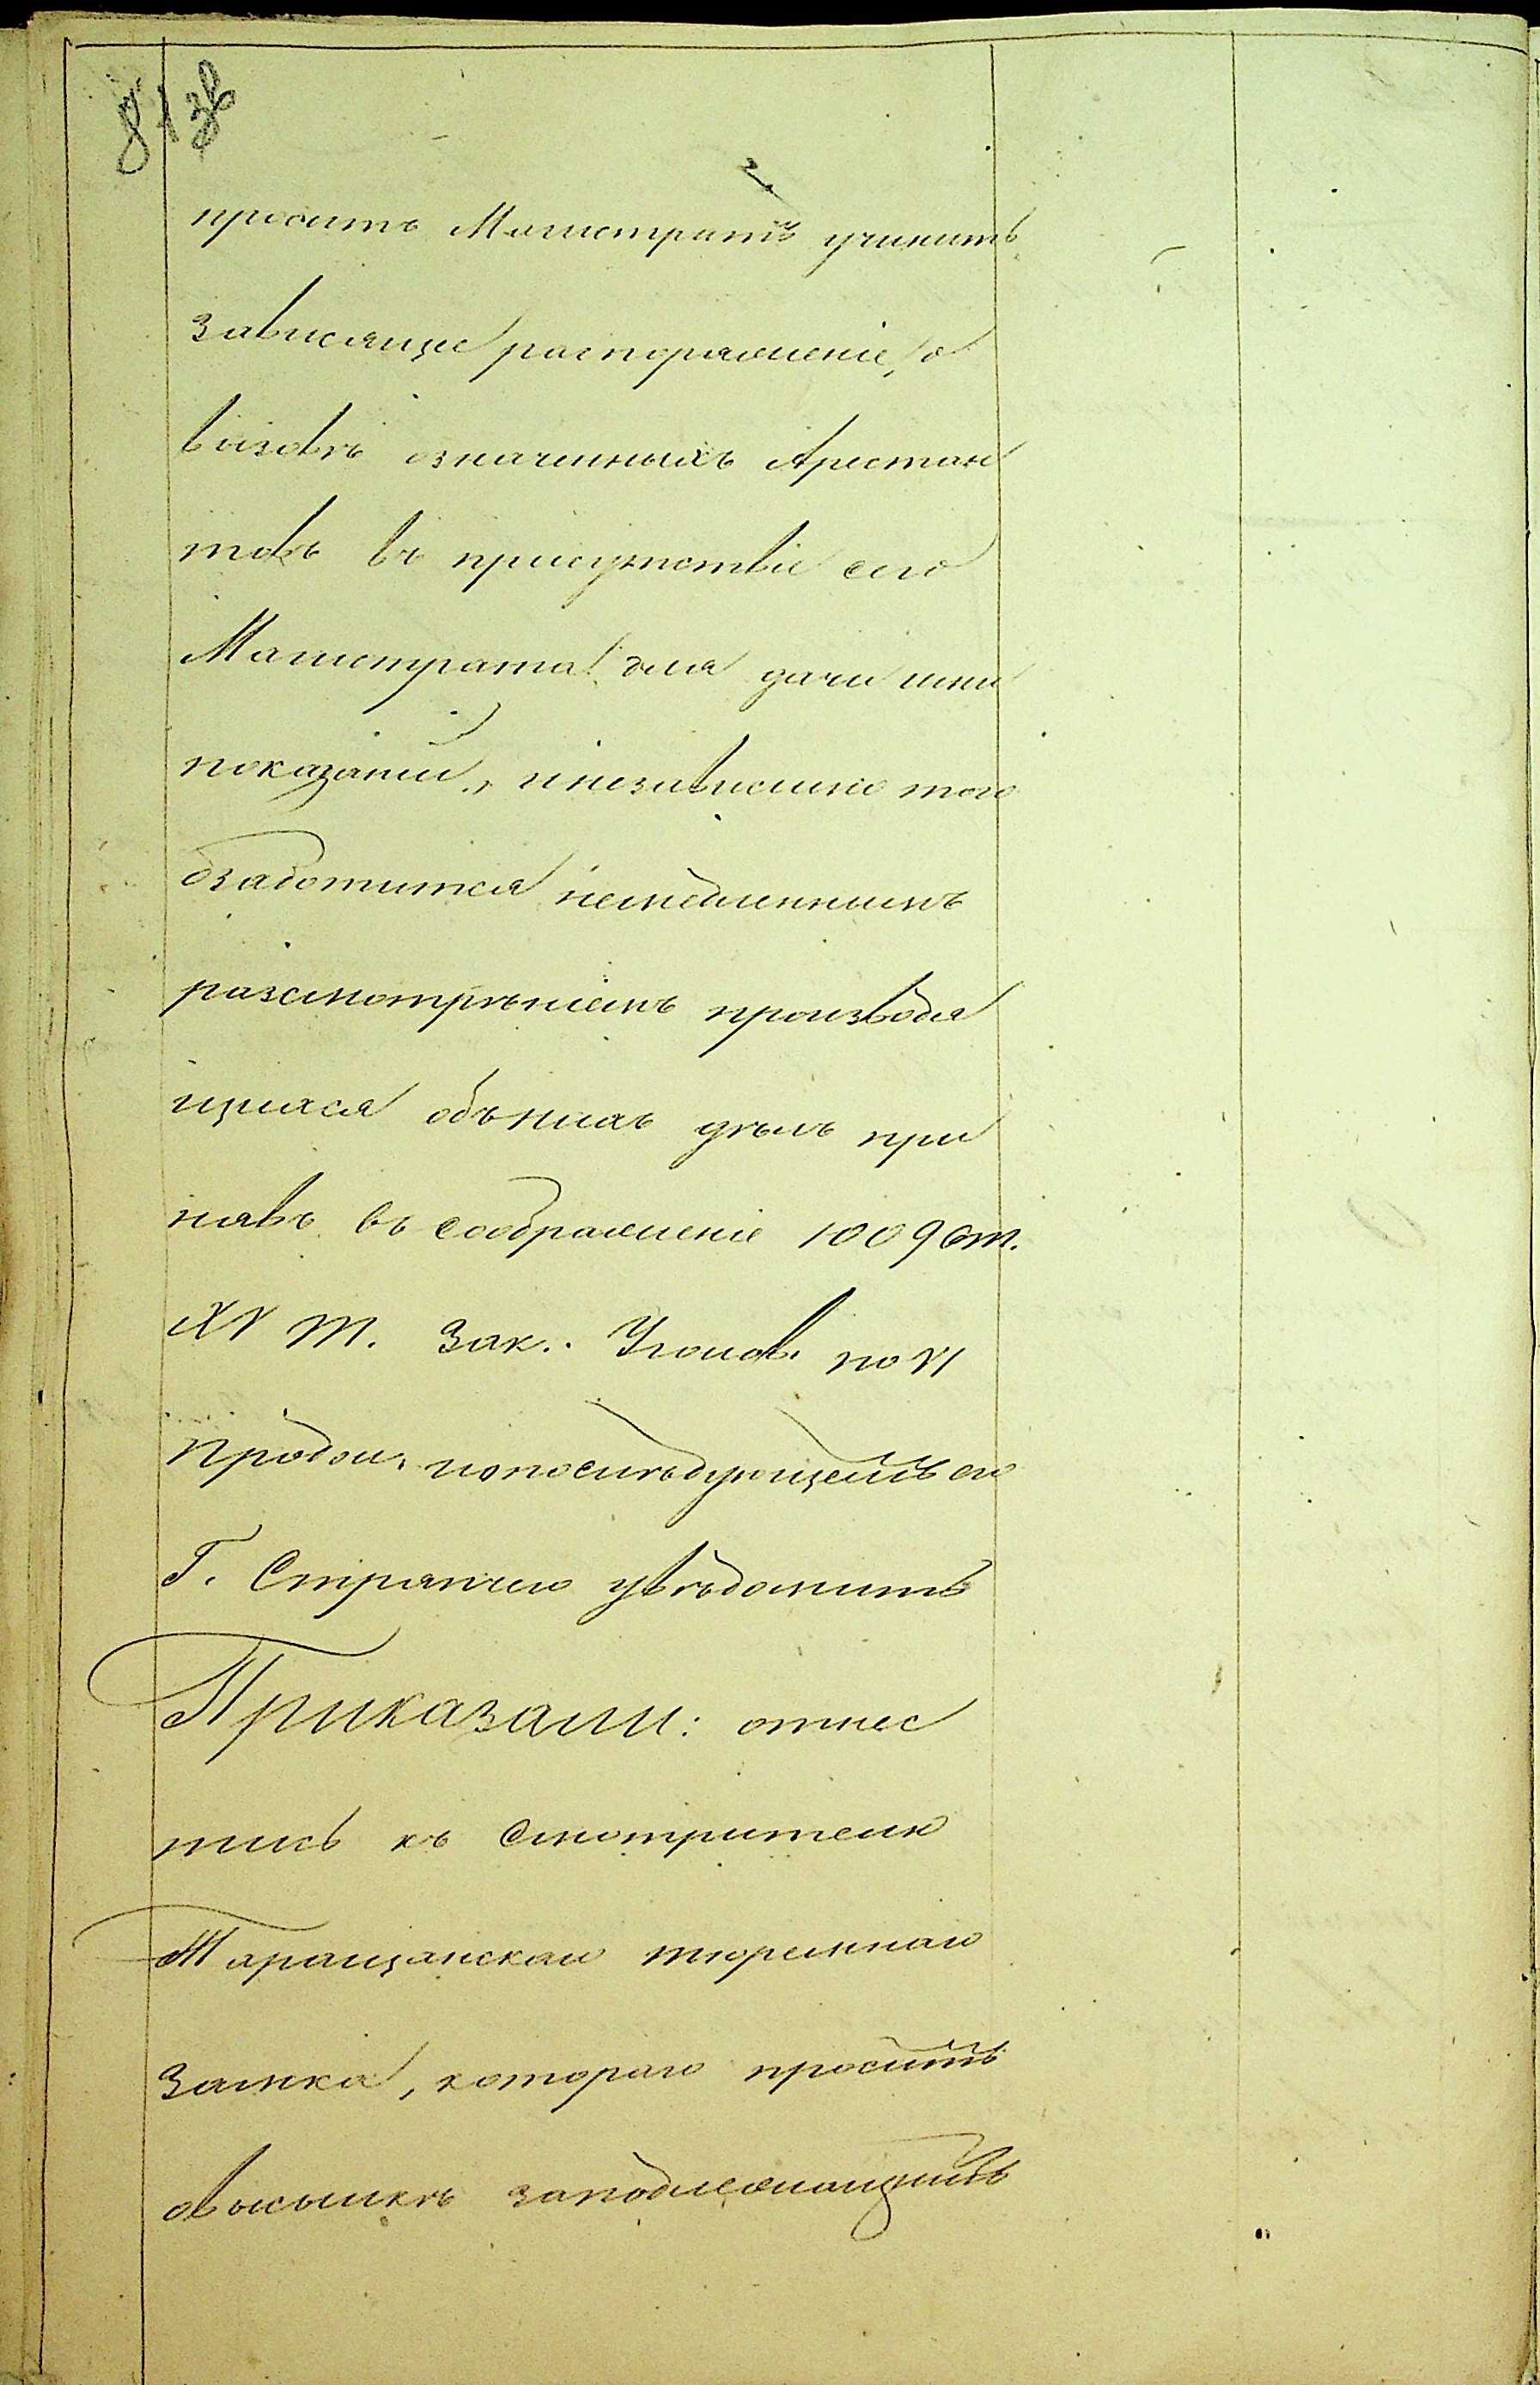 81 зв
проситъ Магистратъ учинить
зависящее распоряженіе, о
вызовѣ означенныхъ Арестан
товъ въ присутствіе сего
Магистрата для дачи ими
показаній, и независимо того
озаботится немедленнымъ
разсмотрѣніемъ производя
щихся объ нихъ дѣлъ при
нявъ въ соображеніе 1009 ст.
XV т. Зак. Уголов. по VI
продол. и о послѣдующемъ его
Г. Стряпчаго увѣдомить
Приказали: отнес
тись къ Смотрителю
Таращанскаго тюремнаго
Замка, котораго просить
о высылкѣ за подлежащимъ